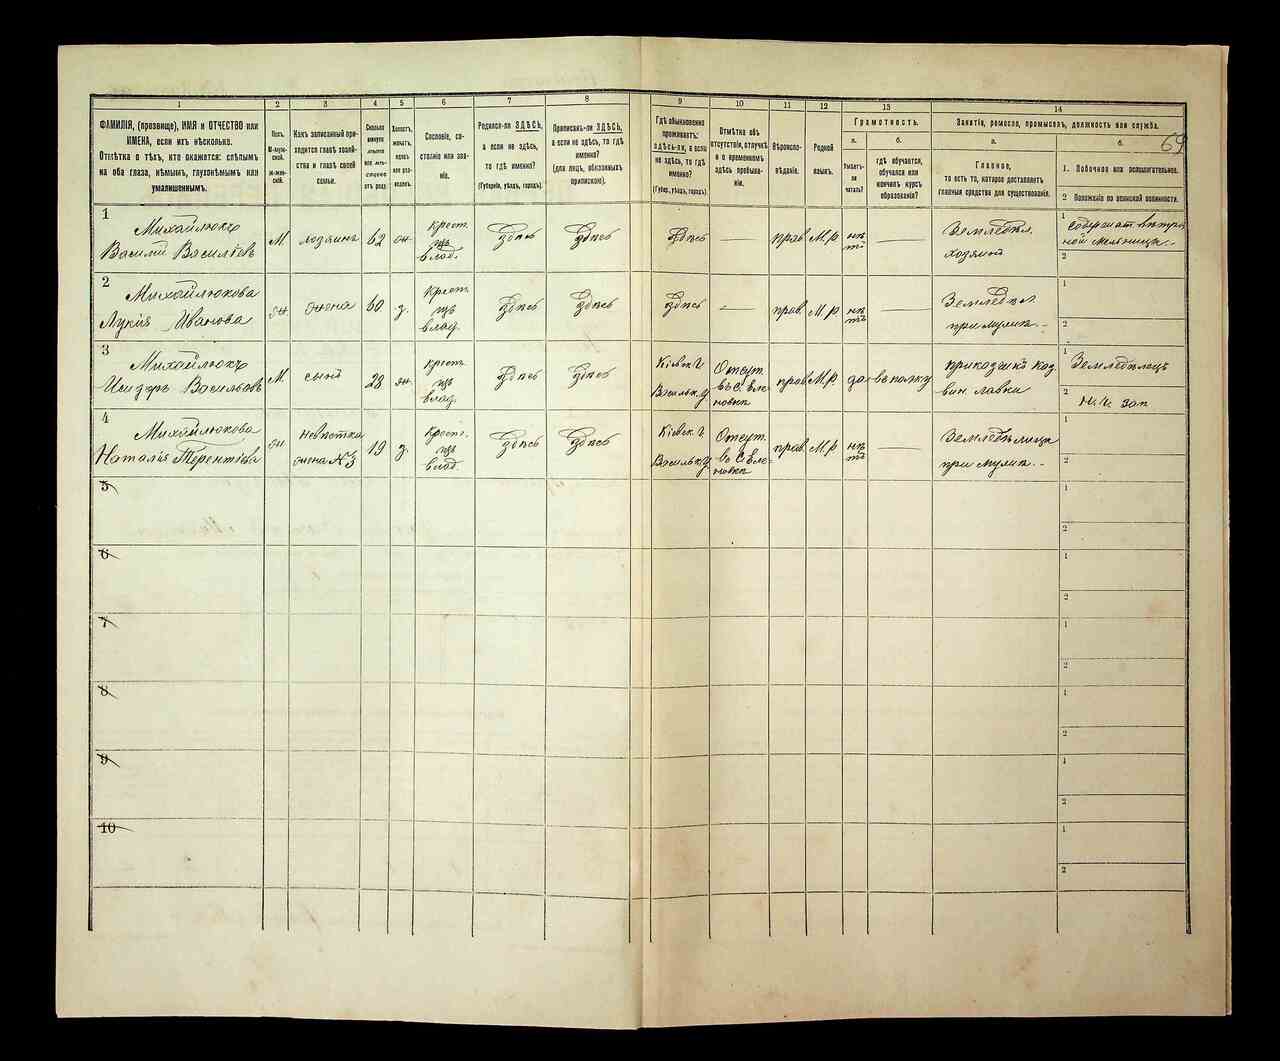 1
2
3
4
5
6
7
8
9
10
11
12
13
14
ФАМИЛІЯ, (прозвище), ИМЯ и ОТЧЕСТВО или
ИМЕНА, если ихъ нѣсколько.
Отмѣтка о тѣхъ, кто окажется: слѣпымъ
на оба глаза, нѣмымъ, глухонѣмымъ или
умалишеннымъ.
Полъ.
М-муж-
ской.
Ж-жен-
скій.
Какъ записанный при-
ходится главѣ хозяй-
ства и главѣ своей
семьи.
Сколько
минуло
лѣтъ
или мѣс.
отъ роду.
Холостъ,
женатъ,
вдовъ
или раз-
веденъ.
Сословіе, со-
стояніе или зва-
ніе.
Родился-ли ЗДѢСЬ,
а если не здѣсь,
то гдѣ именно?
(Губернія, уѣздъ, городъ).
Приписанъ-ли ЗДѢСЬ,
а если не здѣсь, то гдѣ
именно?
(для лицъ, обязанныхъ
припискою).
Гдѣ обыкновенно
проживаетъ:
здѣсь-ли, а если
не здѣсь, то гдѣ
именно?
(Губер., уѣздъ, городъ).
Отмѣтка объ
отсутствіи, отлучкѣ
и о временномъ
здѣсь пребыва-
ніи.
Вѣроиспо-
вѣданіе.
Родной
языкъ.
Грамотность.
а.
Умѣетъ-
ли
читать?
б.
гдѣ обучается,
обучался или
кончилъ курсъ
образованія?
Занятіе, ремесло, промыселъ, должность или служба.
69
а.
Главное,
то есть то, которое доставляетъ
главныя средства для существованія.
б.
1. Побочное или вспомогательное.
2 Положеніе по воинской повинности.
1
Михайлюкъ
Василій Васильевъ
М. хозяинъ 62 ж. Крест. изъ влад. Здѣсь Здѣсь
Здѣсь — прав. М.р. нѣтъ —
Земледѣл.
хозяинъ
1 Содержат. вѣтря
ной мельницы.
2
2
Михайлюкова
Лукія Иванова
ж жена 60 з. Крест. изъ влад. Здѣсь Здѣсь
Здѣсь — прав. М.р. нѣтъ —
Земледѣл.
при мужѣ.
1
2
3
Михайлюкъ
Исидоръ Васильевъ
М. сынъ 28 ж. Крест. изъ влад. Здѣсь Здѣсь
Кіевск. г. Васильк. у Отсут. въ с. прав. М.р. да въ полку
вин. лавки
1 Земледѣлецъ
2 зап
4
Михайлюкова
Наталія Терентіева
ж невѣстка жена №3 19 з. Крест. изъ влад. Здѣсь Здѣсь
Кіевск. г. Васильк. у Отсут. въ с. прав. М.р нѣтъ —
Земледѣлица
при мужѣ.
1
2
5
1
2
6
1
2
7
1
2
8
1
2
9
1
2
10
1
2